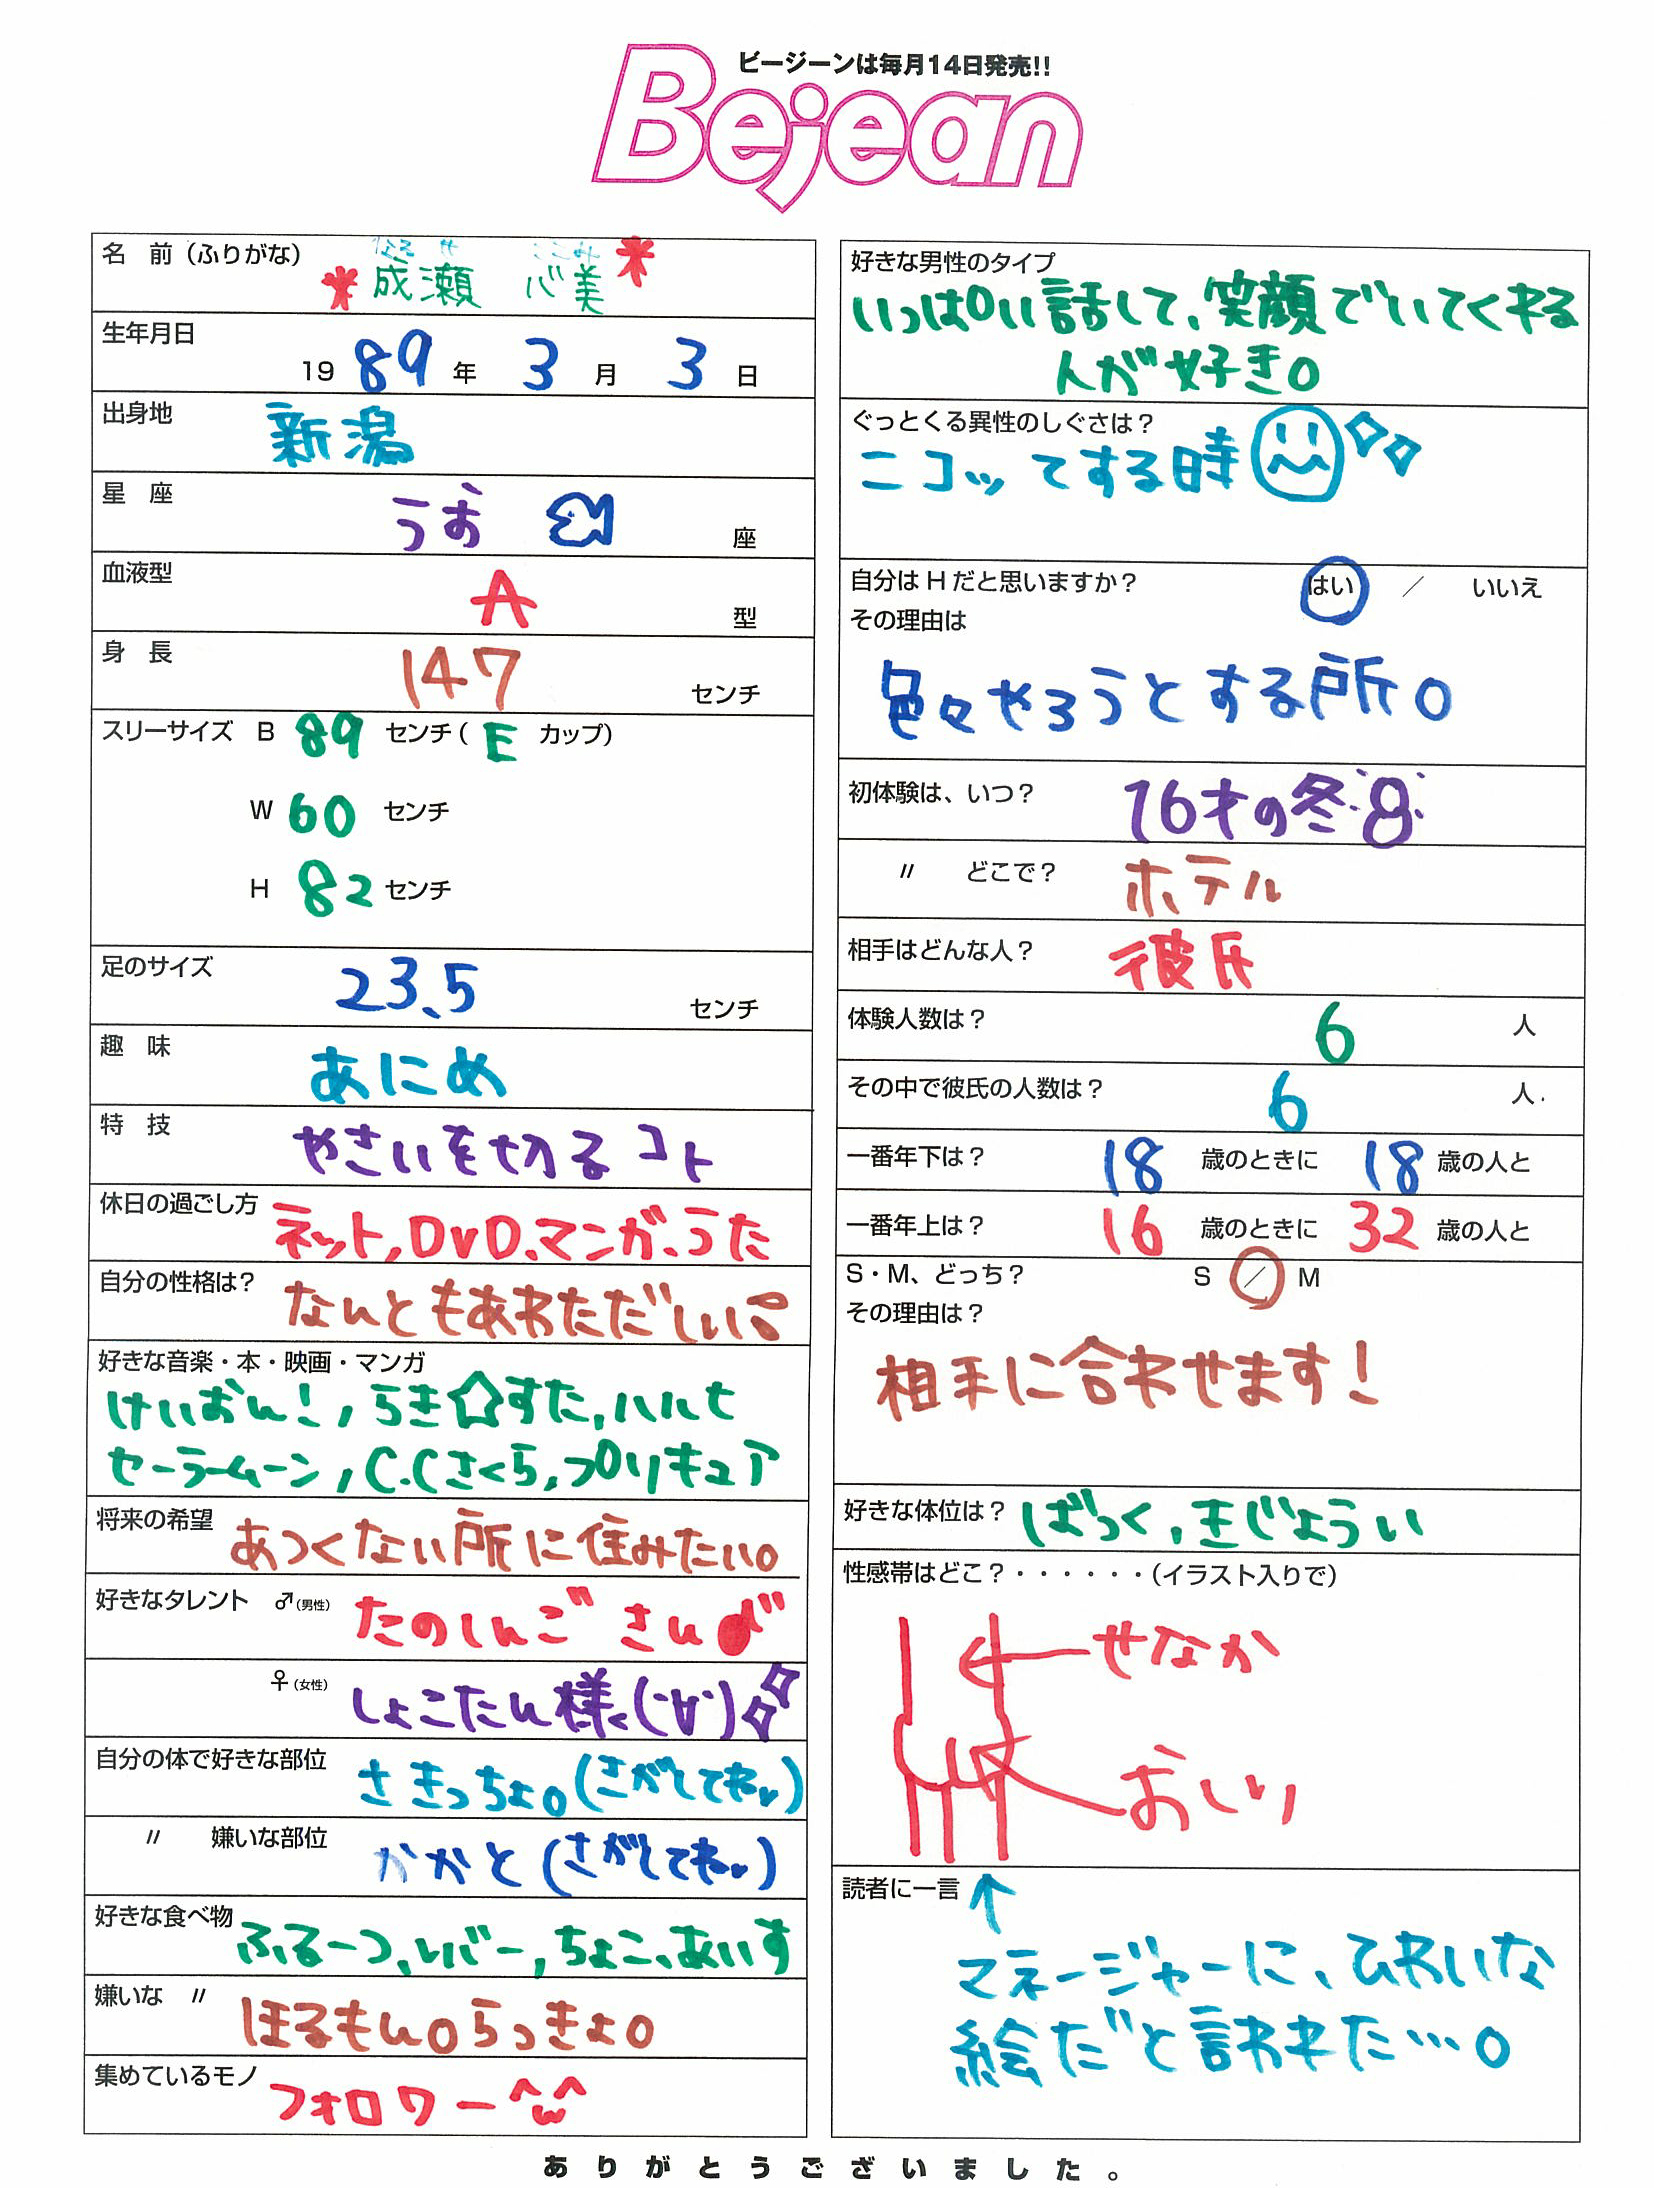 ビージーンは毎月14日発売!!
Bejean
名 前（ふりがな）
なるせ ここみ
成瀬 心美
生年月日
19 89 年 3 月 3 日
出身地 新潟
星 座 うお 座
血液型 A 型
身 長 147 センチ
スリーサイズ B 89 センチ（E カップ）
W 60 センチ
H 82 センチ
足のサイズ 23.5 センチ
趣 味 あにめ
特 技 やさいを切るコト
休日の過ごし方 ネット,DVD、マンガ、うた
自分の性格は？ なんともあわただしい
好きな音楽・本・映画・マンガ
けいおん！, らき☆すた, ハルヒ
セーラームーン, C.Cさくら, プリキュア
将来の希望 あつくない所に住みたい。
好きなタレント ♂（男性） たのしんごさん
♀（女性） しょこたん様
自分の体で好きな部位 さきっちょ。(さがしてね)
〃 嫌いな部位 かかと (さがしてね)
好きな食べ物 ふるーつ、レバー, ちょこ、あいす
嫌いな 〃 ほるもん。らっきょ。
集めているモノ フォロワー^w^
好きな男性のタイプ
いっぱい話して、笑顔でいてくれる
人が好き。
ぐっとくる異性のしぐさは？
ニコッてする時
自分はHだと思いますか？ はい ／ いいえ
その理由は
色々やろうとする所。
S・M、どっち？ S ／ M
その理由は？
相手に合わせます！
好きな体位は？ ばっく, きじょうい
性感帯はどこ？・・・・・・（イラスト入りで）
せなか
おしり
読者に一言 ↑
マネージャーに、ひわいな
絵だと言われた…。
ありがとうございました。